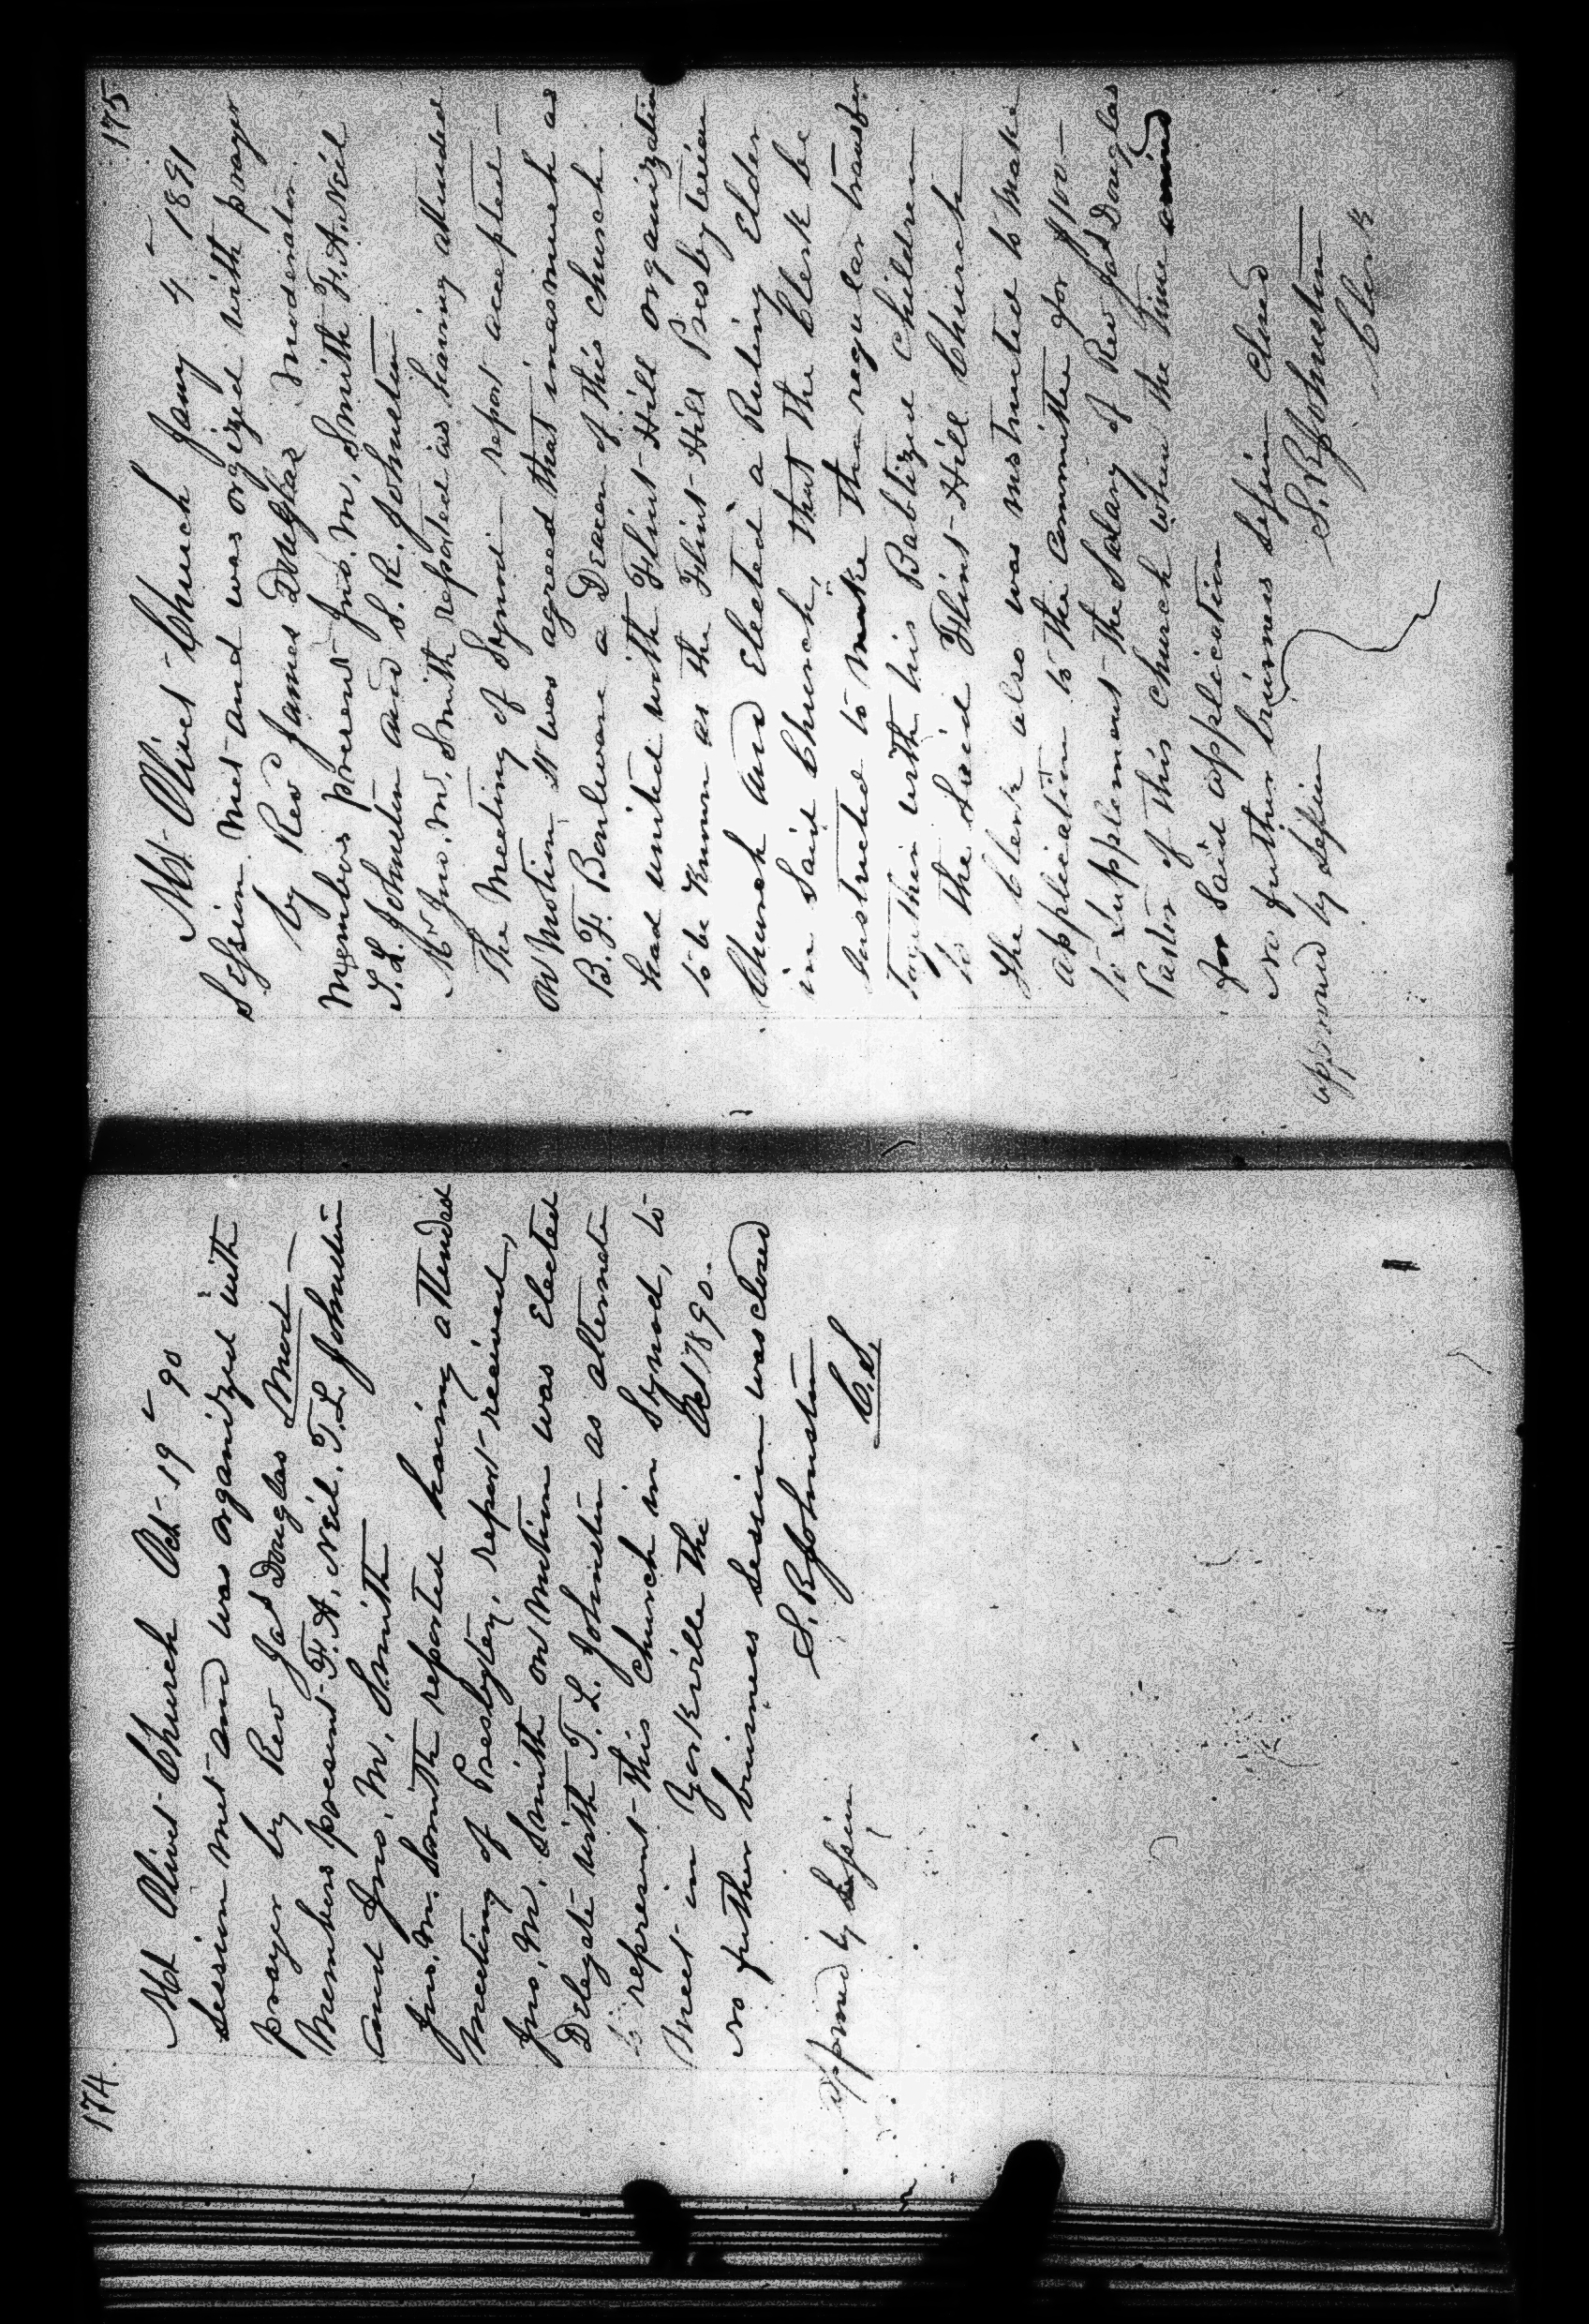 174.
Mt Olivet Church Oct 19 - 90
Session met and was organized with
prayer by Rev Jas Douglas Mod -
Members present F. A. Neil, T. L. Johnston
and Jno. M. Smith
Jno. M. Smith reported having attended
meeting of Presbytery, report received,
Jno. M. Smith on motion was elected
Delegate with T. L. Johnston as alternate
to represent this church in Synod, to
Meet in Yorkville the Oct 1890.
No futher business session was closed
S. R. Johnston
C. S.
approved by Session
175
Mt Olivet Church Jany 4 - 1891
Session met and was orgized with prayer
by Rev James Douglas Moderator
Members present Jno. M. Smith F. A. Neil
T. L. Johnston and S. R. Johnston
Mr Jno. M. Smith reported as having attended
The Meeting of Synod - report accepted -
On Motion it was agreed that inasmuch as
B. F. Bouleware a Deacon of this church
had united with Flint Hill organization
to be known as the Flint Hill Presbyterian
Church and Elected a Ruling Elder
in Said Church, that the Clerk be
Instructed to make the regular transfer
together with his Babtized Children
to the Said Flint Hill Church
The Clerk also was instructed to make
application to the committee for $100 -
to Supplement the Salary of Rev Jas Douglas
Pastor of this church when the time arrived
for Said application
No futher business Session closed
S. R. Johnston
Clerk
approved by Session